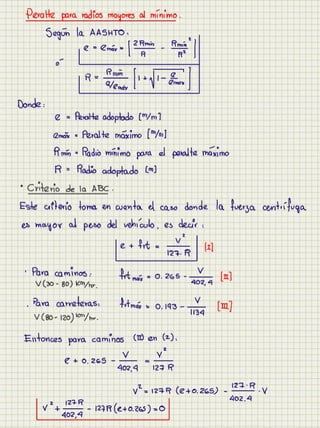 Peralte para radios mayores al mínimo.
Según la AASHTO:
e = emáx = [ 2 Rmín / R - Rmín² / R² ]
o'
R = Rmín / e/emáx [ 1 + √ 1 - e / emáx ]
Donde:
e = Peralte adoptado [m/m]
emáx = Peralte máximo [m/m]
R mín = Radio mínimo para el peralte máximo
R = Radio adoptado [m]
* Criterio de la ABC.
Este criterio toma en cuenta el caso donde la fuerza centrífuga
es mayor al peso del vehículo, es decir:
e + frt = V² / 127 R [I]
· Para caminos: frt máx = 0.265 - V / 402,4 [II]
V (30 - 80) km/hr.
. Para carreteras: frt máx = 0.193 - V / 1134 [III]
V (80 - 120) km/hr.
Entonces para caminos (II) en (I):
e + 0.265 - V / 402,4 = V² / 127 R
V² = 127 R (e + 0.265) - 127·R / 402.4 · V
V² + 127 R / 402,4 - 127 R (e + 0.265) = 0